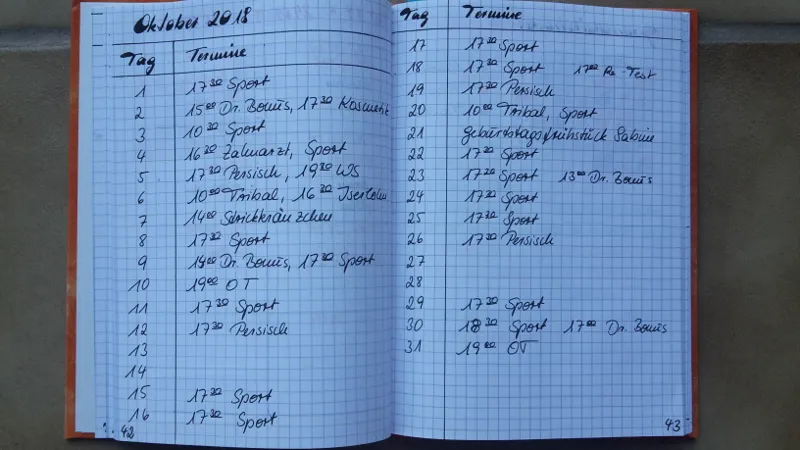 Oktober 2018
Tag Termine
1 17³⁰ Sport
2 15⁰⁰ Dr. Bonus, 17³⁰ Kosmetik
3 10³⁰ Sport
4 16³⁰ Zahnarzt, Sport
5 17³⁰ Persisch, 19³⁰ WS
6 10⁰⁰ Tribal, 16³⁰ Iserlohn
7 14⁰⁰ Strickkränzchen
8 17³⁰ Sport
9 14⁰⁰ Dr. Bonus, 17³⁰ Sport
10 19⁰⁰ OT
11 17³⁰ Sport
12 17³⁰ Persisch
13
14
15 17³⁰ Sport
16 17³⁰ Sport
42
Tag Termine
17 17³⁰ Sport
18 17³⁰ Sport 17⁰⁰ Re-Test
19 17³⁰ Persisch
20 10⁰⁰ Tribal, Sport
21 Geburtstagsfrühstück Sabine
22 17³⁰ Sport
23 17³⁰ Sport 13⁰⁰ Dr. Bonus
24 17³⁰ Sport
25 17³⁰ Sport
26 17³⁰ Persisch
27
28
29 17³⁰ Sport
30 18³⁰ Sport 17⁰⁰ Dr. Bonus
31 19⁰⁰ OT
43